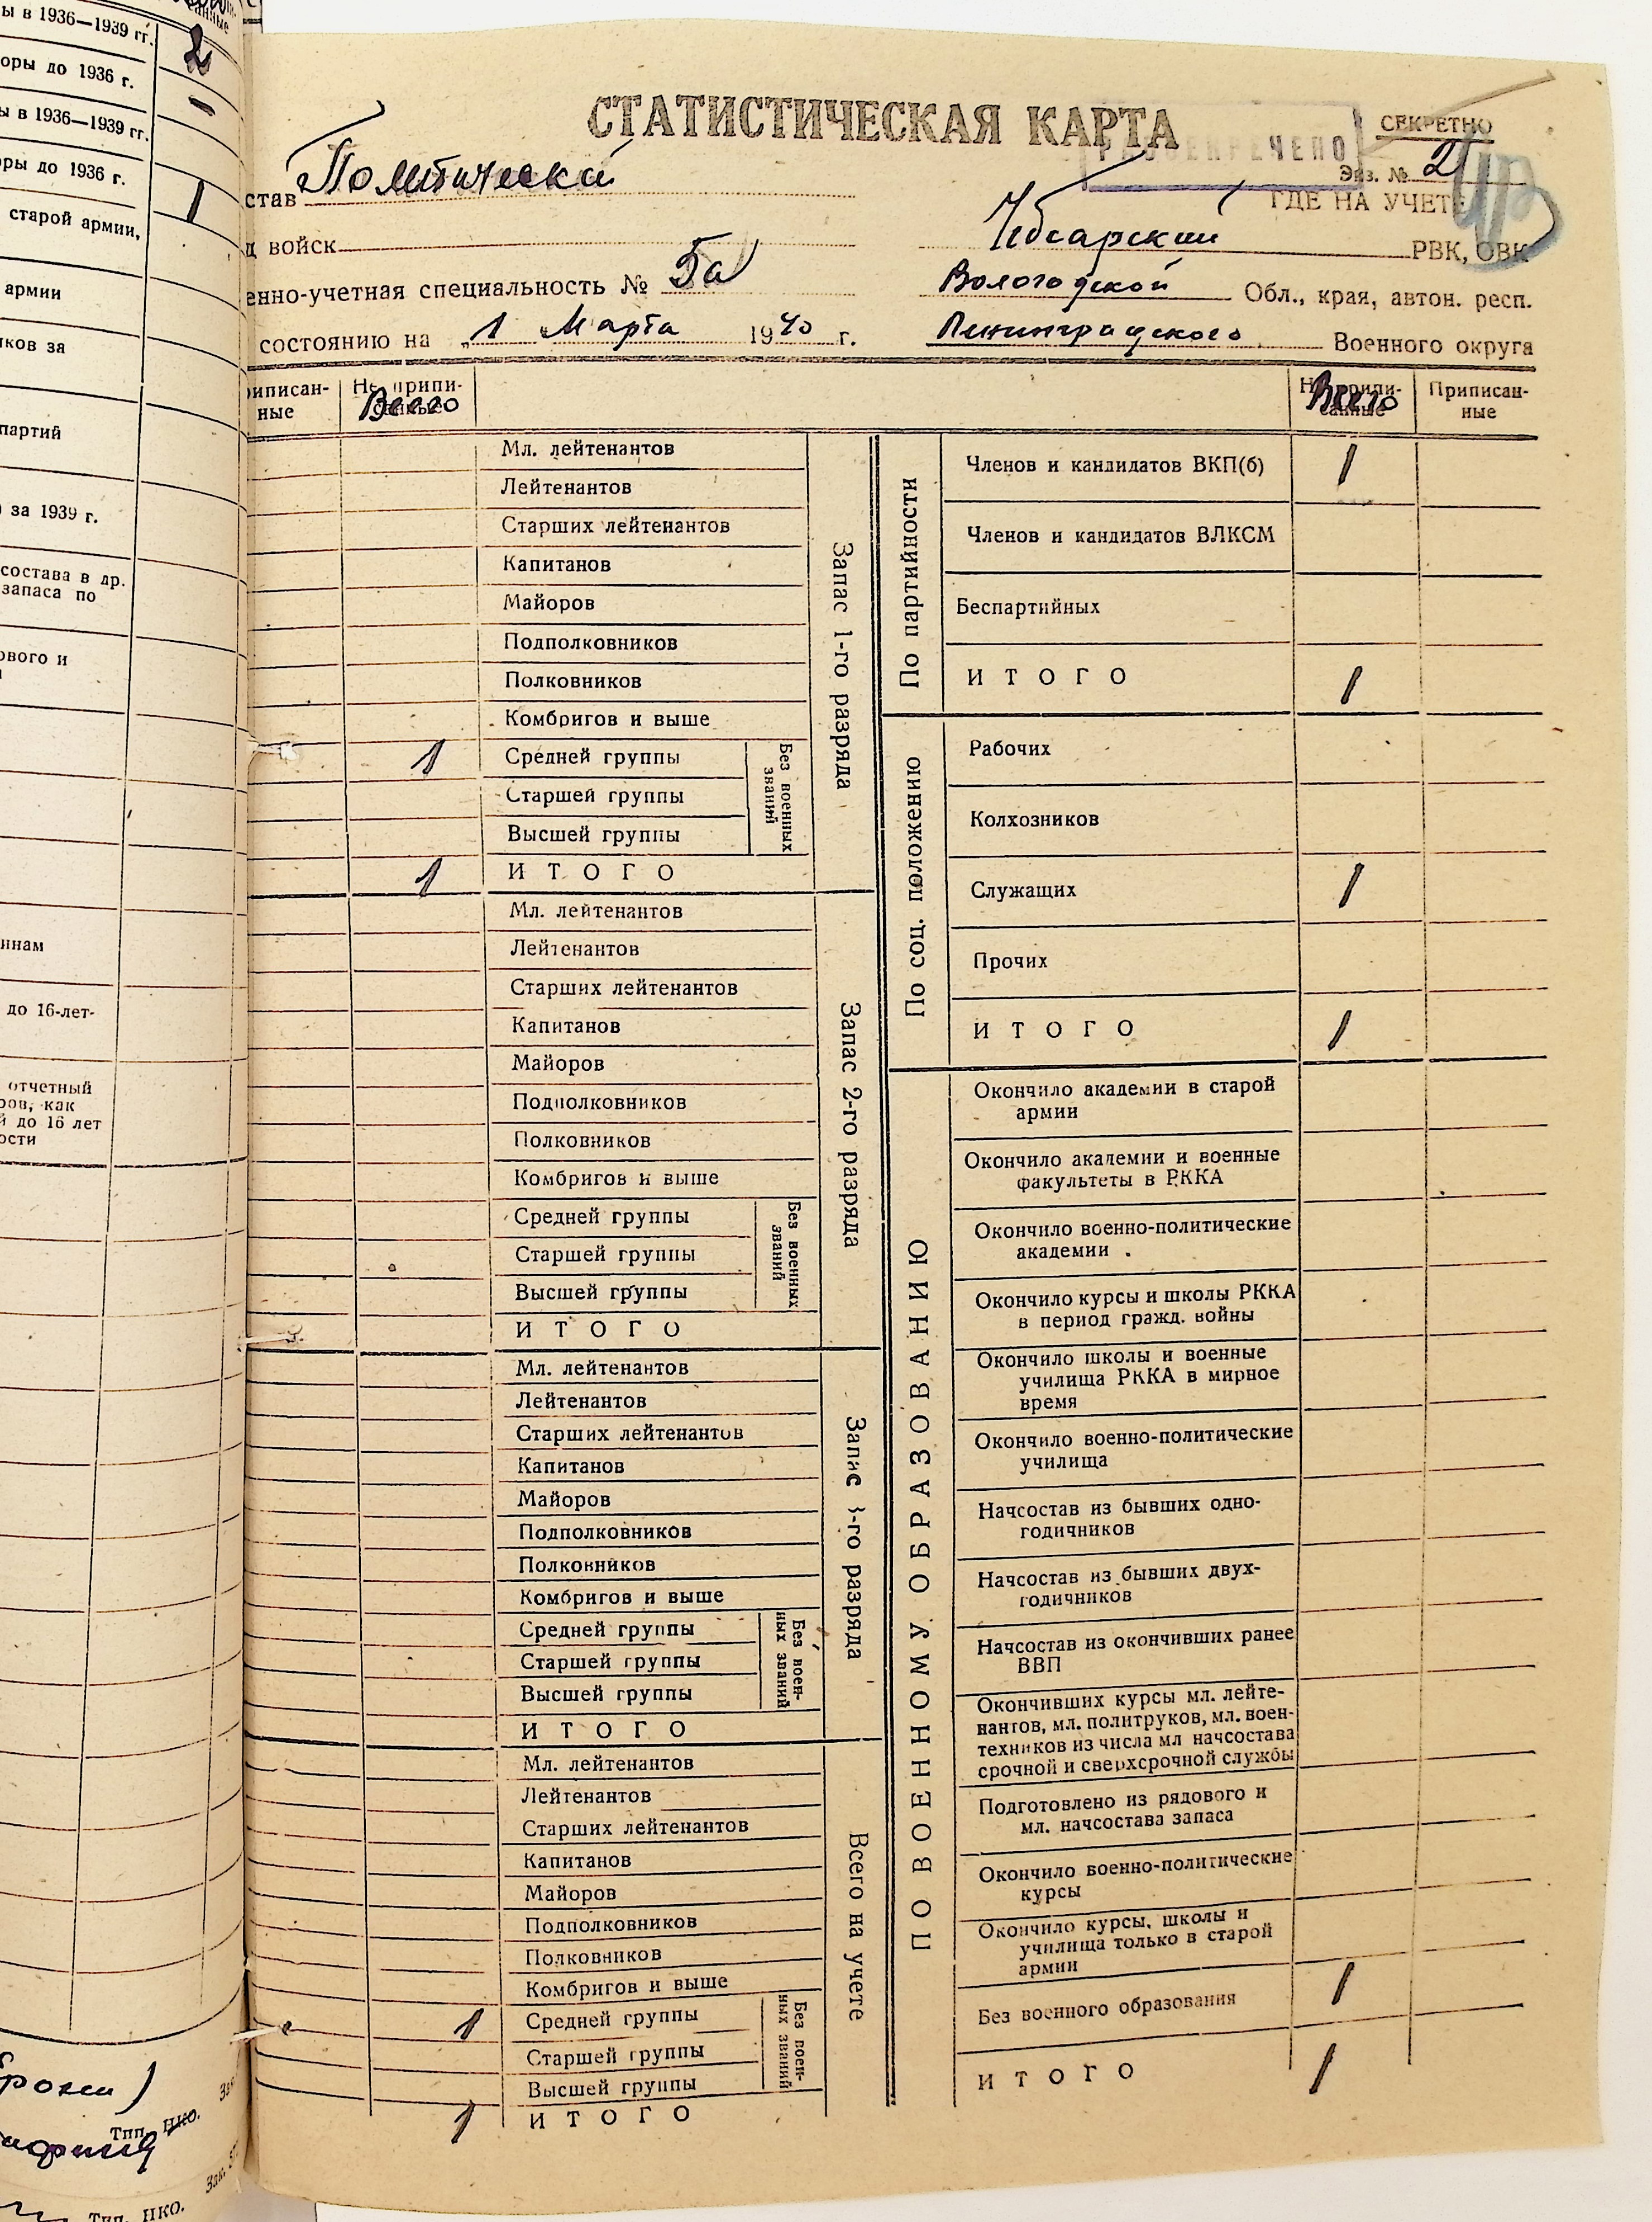 ы в 1936—1939 гг. 2
оры до 1936 г. —
ы в 1936—1939 гг.
оры до 1936 г. 1
старой армии,
армии
ков за
партий
за 1939 г.
состава в др.
запаса по
ового и
ннам
до 16-лет-
отчетный
ров, как
й до 16 лет
ости
Тип. НКО.
Тип. НКО.
СТАТИСТИЧЕСКАЯ КАРТА
РАССЕКРЕЧЕНО
СЕКРЕТНО
Экз. № 2
став Политический
ГДЕ НА УЧЕТЕ
д войск
Чебсарский РВК, ОВК
енно-учетная специальность № 5а
Вологодской Обл., края, автон. респ.
состоянию на „1 Марта 1940 г.
Ленинградского Военного округа
риписан-
ные
Не припи-
санные
Всего
Не припи-
санные
Всего
Приписан-
ные
Запас 1-го разряда
Мл. лейтенантов
Лейтенантов
Старших лейтенантов
Капитанов
Майоров
Подполковников
Полковников
Комбригов и выше
1 Средней группы
Старшей группы
Высшей группы
Без военных
званий
1 ИТОГО
Запас 2-го разряда
Мл. лейтенантов
Лейтенантов
Старших лейтенантов
Капитанов
Майоров
Подполковников
Полковников
Комбригов и выше
Средней группы
Старшей группы
Высшей группы
Без военных
званий
ИТОГО
Запас 3-го разряда
Мл. лейтенантов
Лейтенантов
Старших лейтенантов
Капитанов
Майоров
Подполковников
Полковников
Комбригов и выше
Средней группы
Старшей группы
Высшей группы
Без воен-
ных званий
ИТОГО
Всего на учете
Мл. лейтенантов
Лейтенантов
Старших лейтенантов
Капитанов
Майоров
Подполковников
Полковников
Комбригов и выше
1 Средней группы
Старшей группы
Высшей группы
Без воен-
ных званий
1 ИТОГО
По партийности
Членов и кандидатов ВКП(б) 1
Членов и кандидатов ВЛКСМ
Беспартийных
ИТОГО 1
По соц. положению
Рабочих
Колхозников
Служащих 1
Прочих
ИТОГО 1
ПО ВОЕННОМУ ОБРАЗОВАНИЮ
Окончило академии в старой
армии
Окончило академии и военные
факультеты в РККА
Окончило военно-политические
академии
Окончило курсы и школы РККА
в период гражд. войны
Окончило школы и военные
училища РККА в мирное
время
Окончило военно-политические
училища
Начсостав из бывших одно-
годичников
Начсостав из бывших двух-
годичников
Начсостав из окончивших ранее
ВВП
Окончивших курсы мл. лейте-
нантов, мл. политруков, мл. воен-
техников из числа мл начсостава
срочной и сверхсрочной службы
Подготовлено из рядового и
мл. начсостава запаса
Окончило военно-политические
курсы
Окончило курсы, школы и
училища только в старой
армии
Без военного образования 1
ИТОГО 1